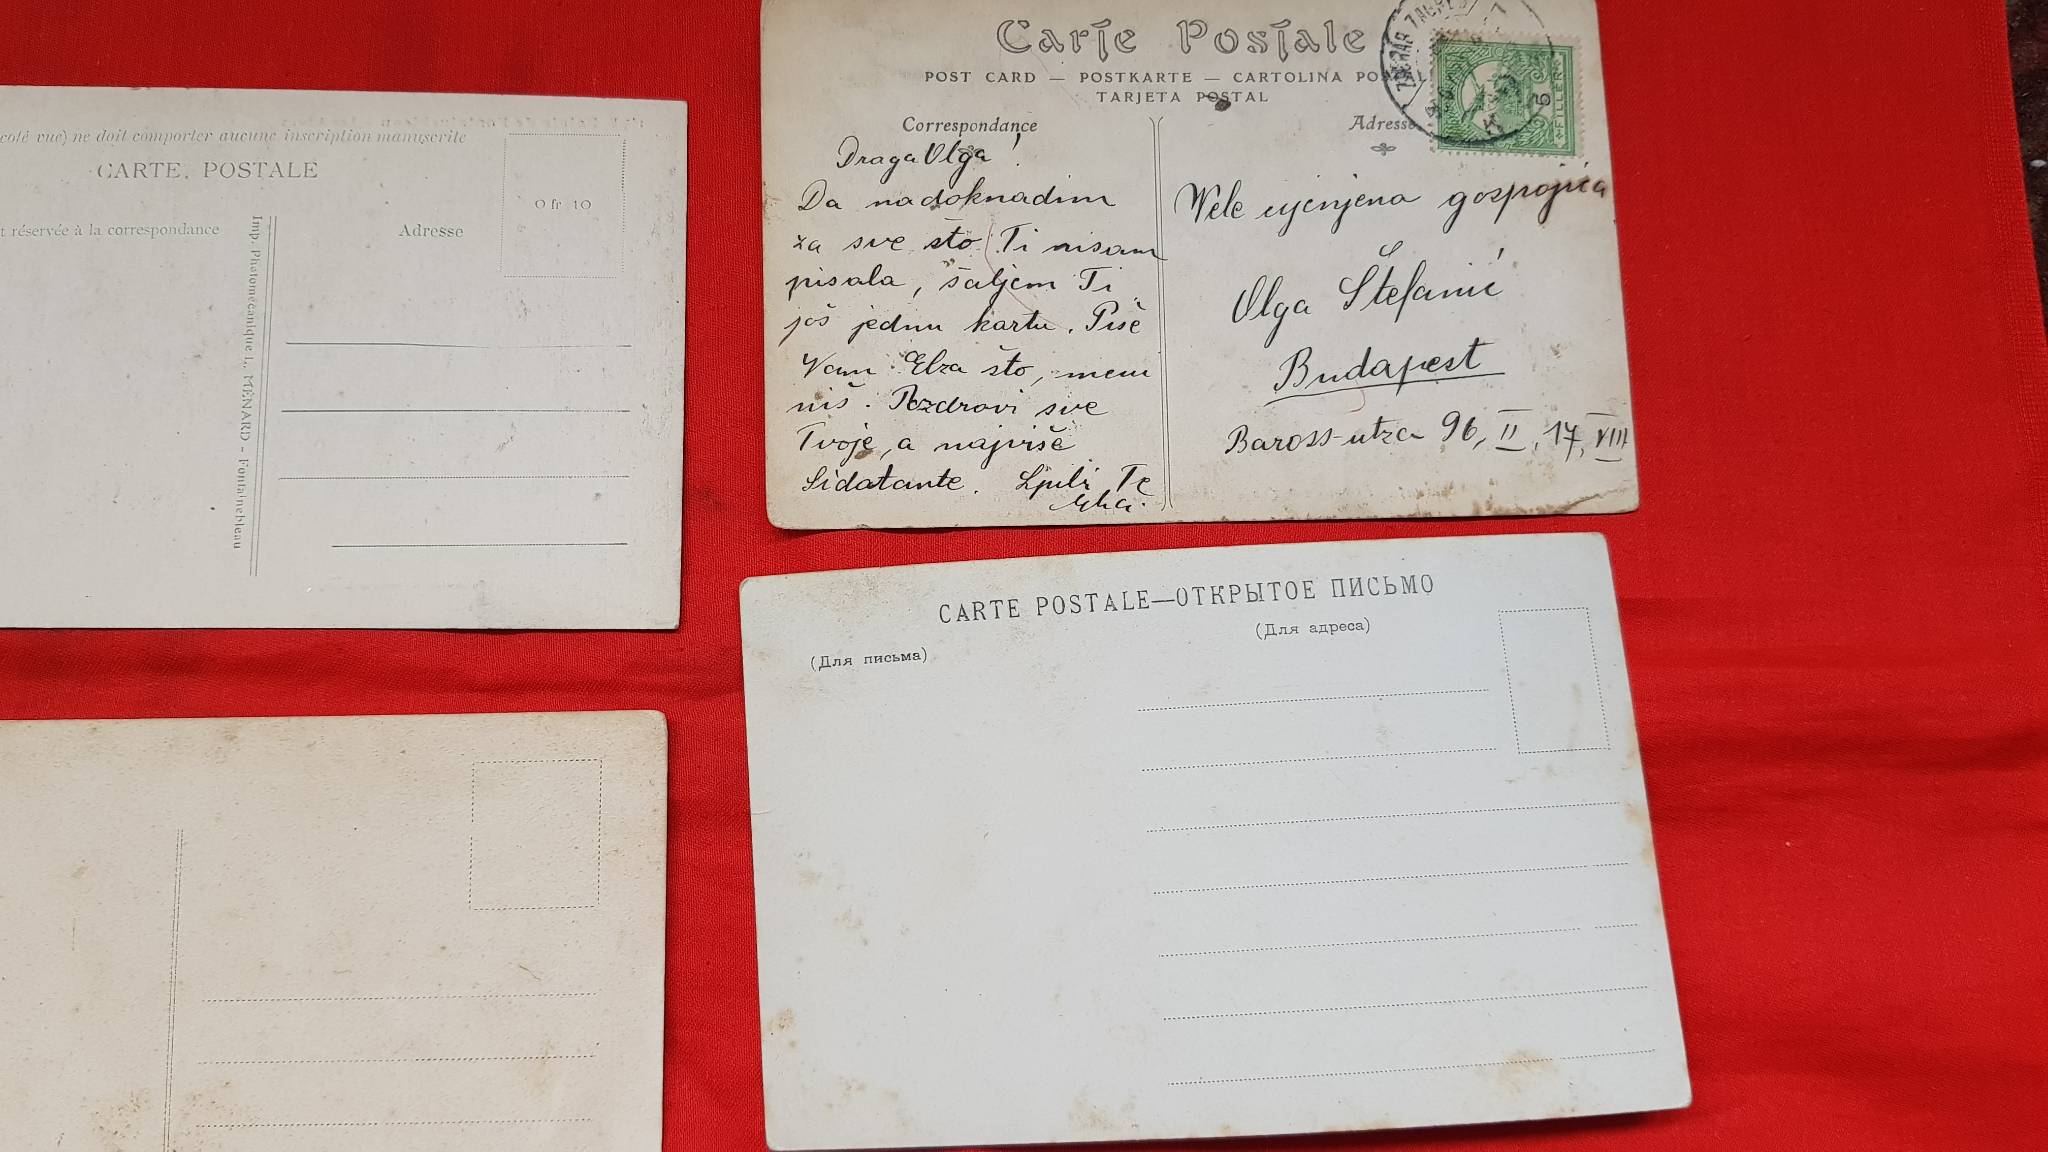 coté vue) ne doit comporter aucune inscription manuscrite
CARTE POSTALE
0 fr 10
t réservée à la correspondance
Adresse
Imp. Photomécanique L. MÉNARD - Fontainebleau
Carte Postale
POST CARD — POSTKARTE — CARTOLINA
TARJETA POSTAL
Correspondance
Adresse
ZAGRAB ZAGREB
5
FILLER
Draga Olga!
Da nadoknadim
za sve što Ti nisam
pisala, šaljem Ti
još jednu kartu. Piše
Vam Elza što, meni
niš. Pozdravi sve
Tvoje, a najviše
Sidatante. Ljubi Te
Vele cijenjena gospojica
Olga Štefanić
Budapest
Baross-utza 96, II, 17, VIII
CARTE POSTALE—ОТКРЫТОЕ ПИСЬМО
(Для адреса)
(Для письма)